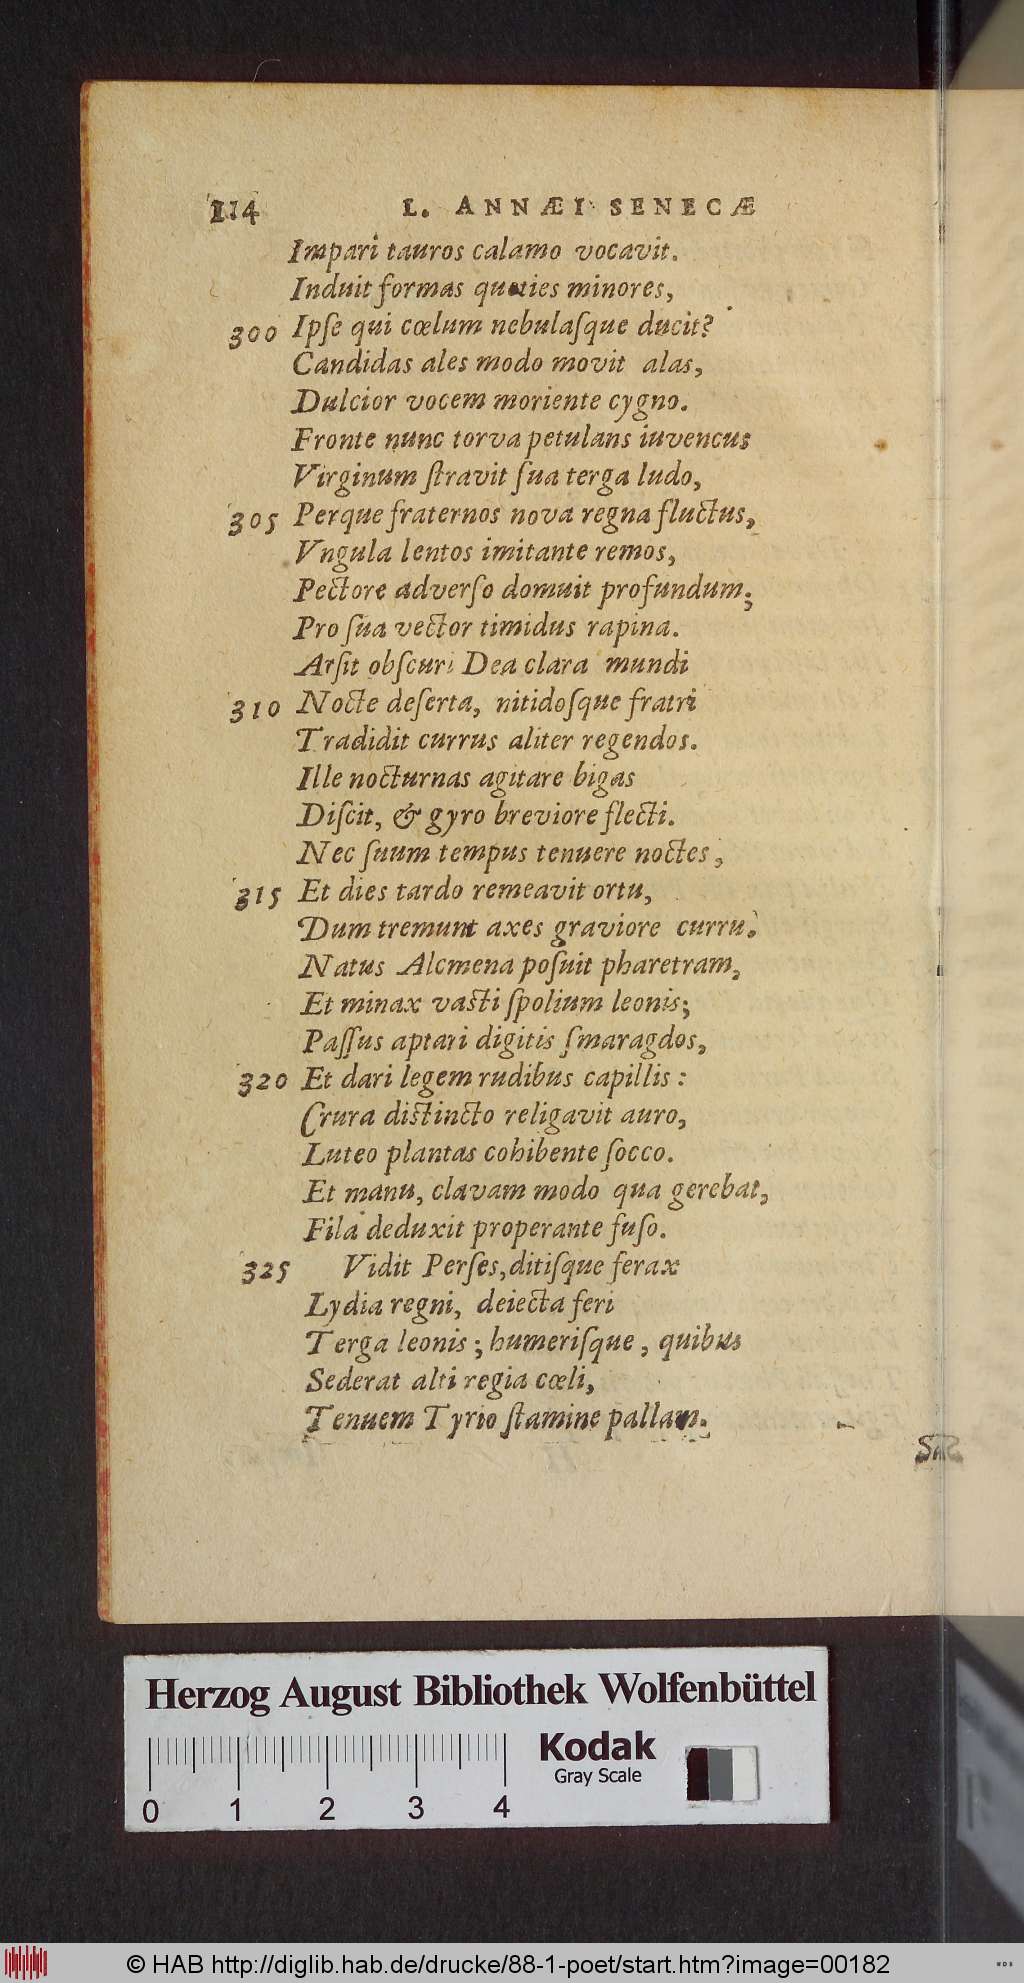 114 L. ANNÆI SENECÆ
Impari tauros calamo vocavit.
Induit formas quoties minores,
300 Ipſe qui cœlum nebulaſque ducit?
Candidas ales modo movit alas,
Dulcior vocem moriente cygno.
Fronte nunc torva petulans iuvencus
Virginum ſtravit ſua terga ludo,
305 Perque fraternos nova regna fluctus,
Vngula lentos imitante remos,
Pectore adverſo domuit profundum;
Pro ſua vector timidus rapina.
Arſit obſcuri Dea clara mundi
310 Nocte deſerta, nitidoſque fratri
Tradidit currus aliter regendos.
Ille nocturnas agitare bigas
Diſcit, & gyro breviore flecti.
Nec ſuum tempus tenuere noctes,
315 Et dies tardo remeavit ortu,
Dum tremunt axes graviore curru.
Natus Alcmena poſuit pharetram,
Et minax vaſti ſpolium leonis;
Paſſus aptari digitis ſmaragdos,
320 Et dari legem rudibus capillis:
Crura diſtincto religavit auro,
Luteo plantas cohibente ſocco.
Et manu, clavam modo qua gerebat,
Fila deduxit properante fuſo.
325 Vidit Perſes, ditiſque ferax
Lydia regni, deiecta feri
Terga leonis; humeriſque, quibus
Sederat alti regia cœli,
Tenuem Tyrio ſtamine pallam.
Herzog August Bibliothek Wolfenbüttel
Kodak
Gray Scale
0 1 2 3 4
© HAB http://diglib.hab.de/drucke/88-1-poet/start.htm?image=00182